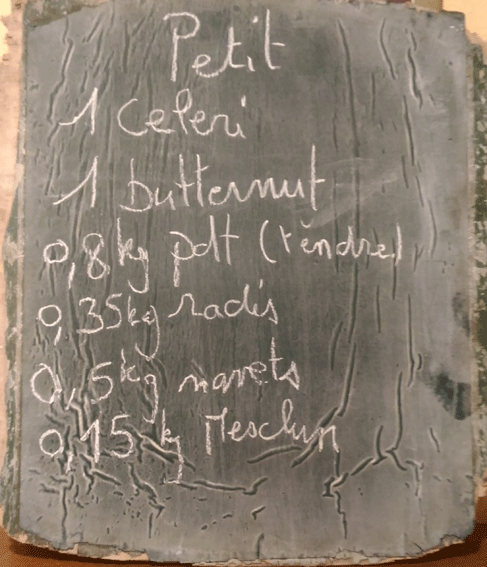 Petit
1 Celeri
1 butternut
0,8kg pdt (tendre)
0,35kg radis
0,5kg navets
0,15 kg Mesclun